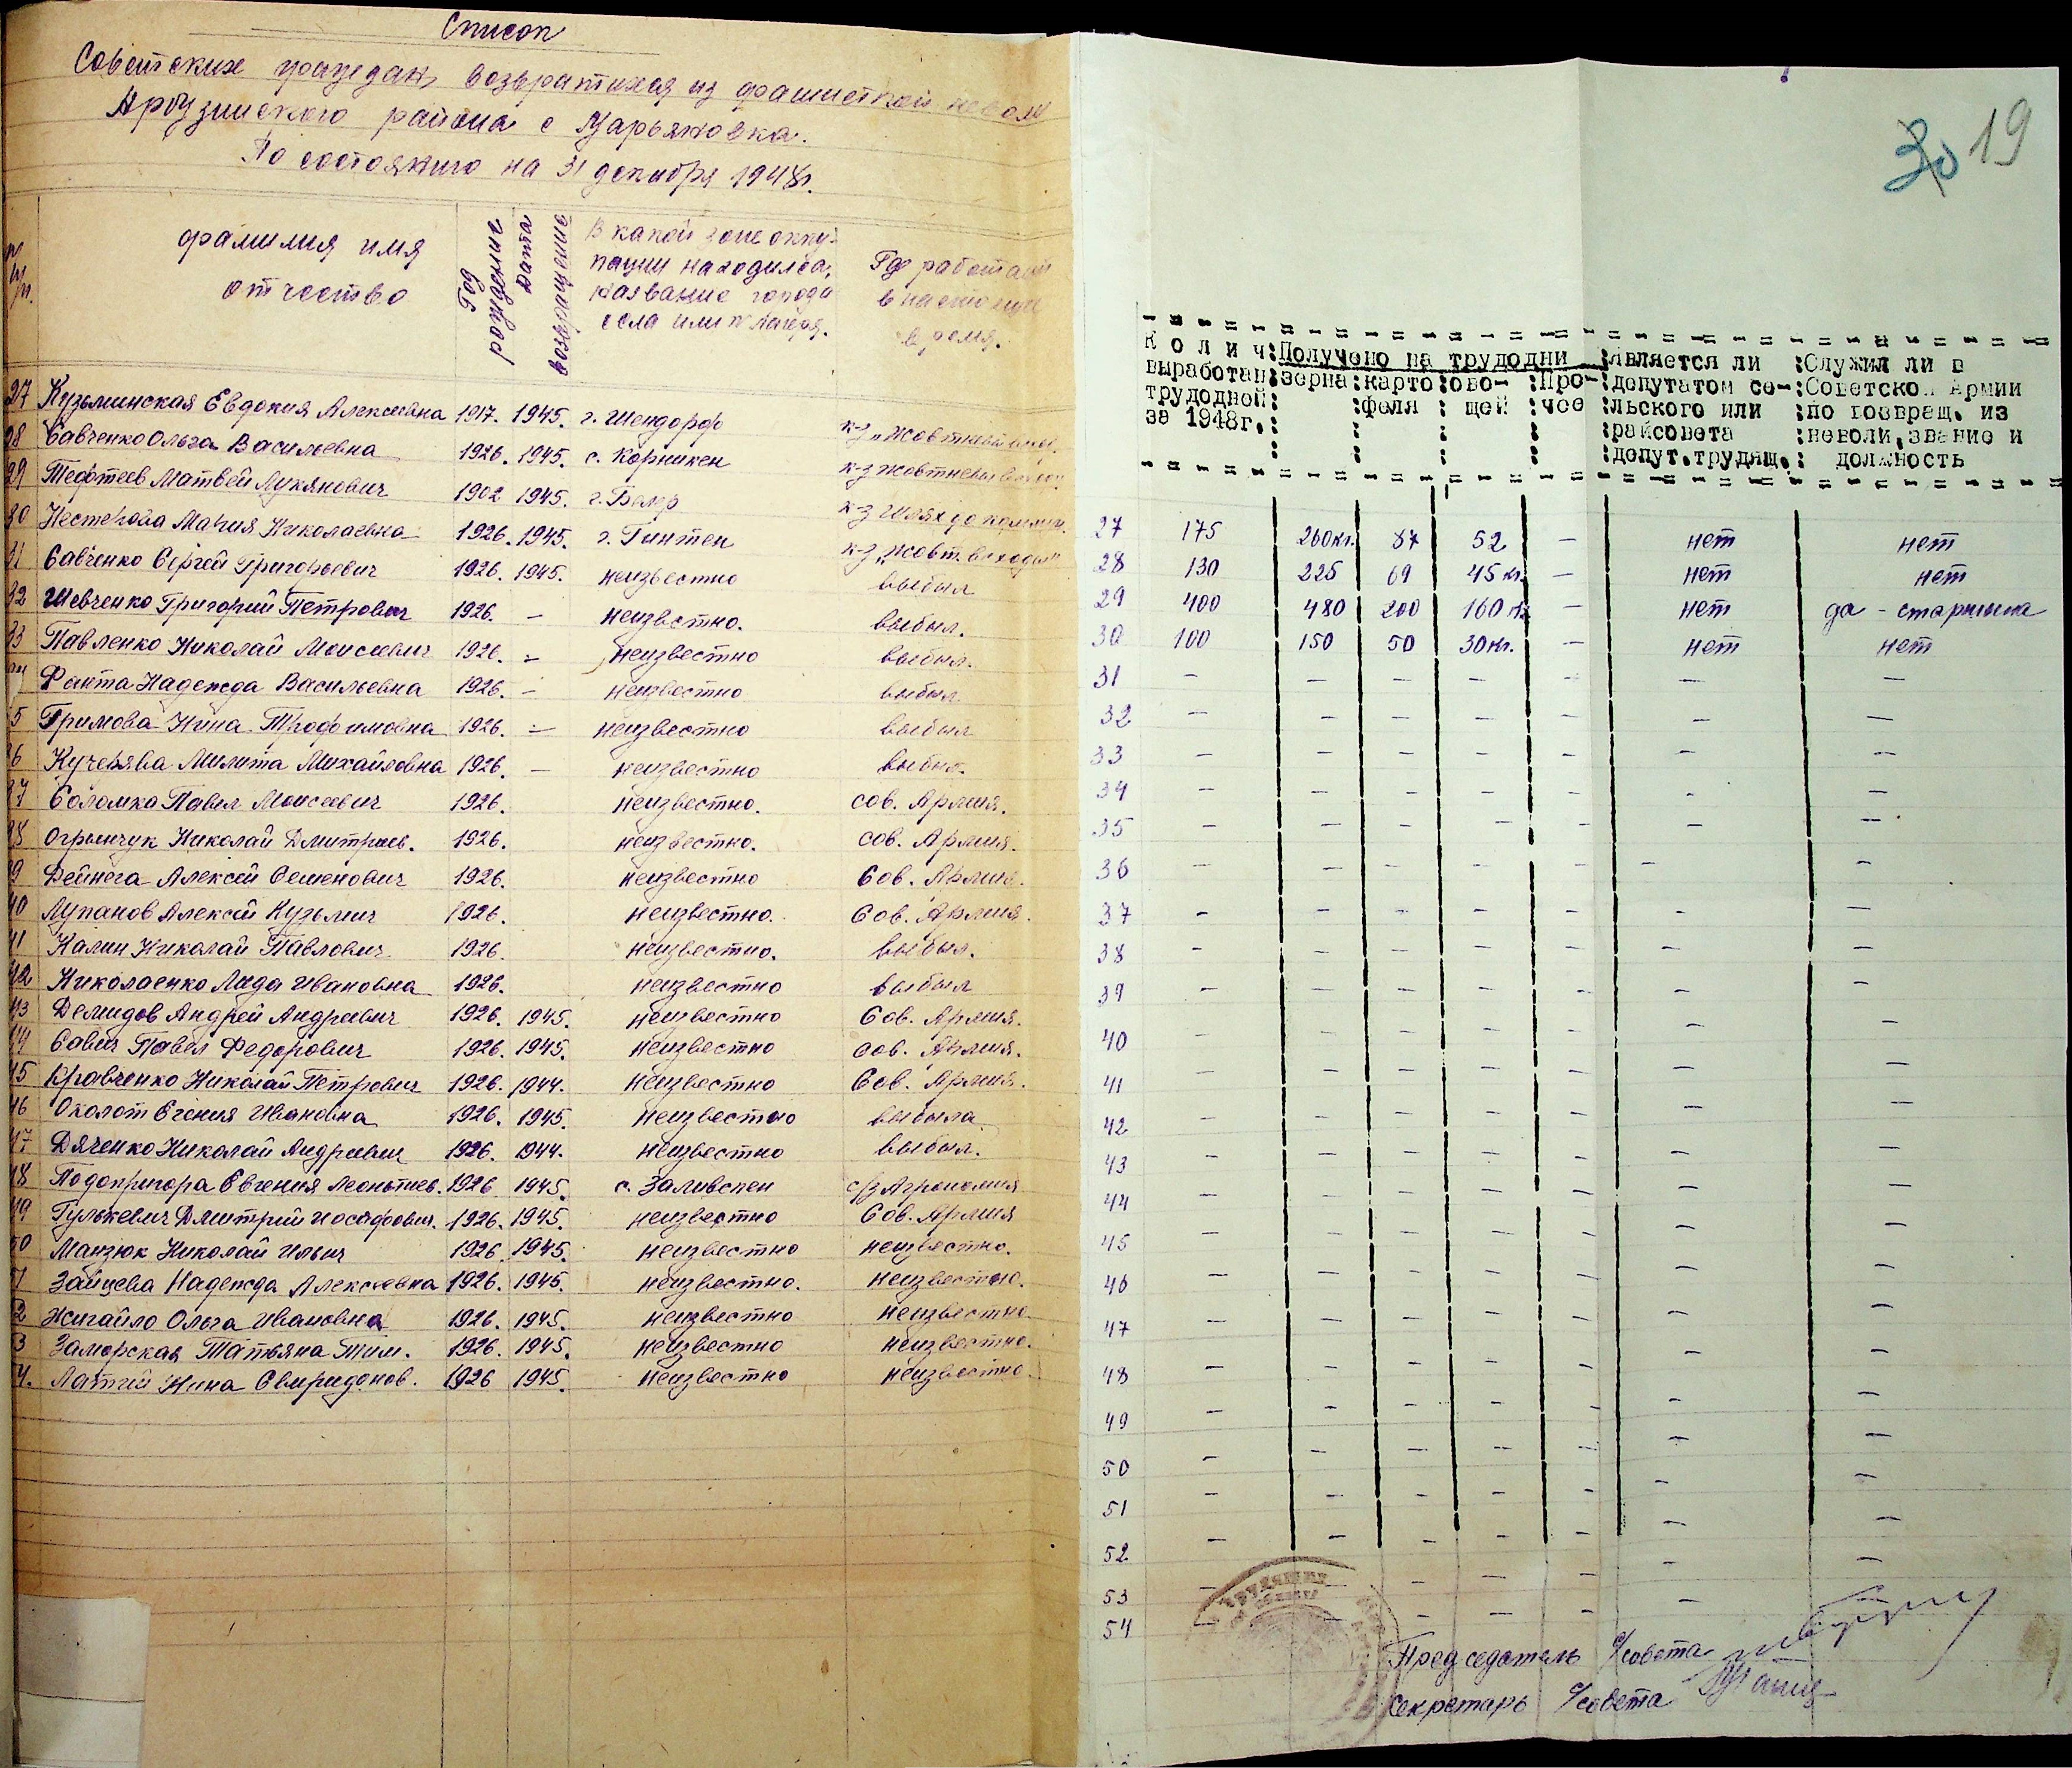 Список
Советских граждан, возвратихся из фашисткой невол
Арбузинского района с Марьяновка.
По состоянию на 31 декабря 1948г.
фамилия имя отчество
Год рождение
Дата возвращение
В какой зоне окку-
пации находился,
название города
села или № лагеря.
Где работает
в настояще
время.
27 Кузьминская Евдокия Алексеевна 1917. 1945. г. Шендорф к-з „Жовтневи
28 Савченко Ольга Васильевна 1926. 1945. с. Корникен к-з Жовтневи
29 Тефтеев Матвей Лукянович 1902 1945. г. к-з Шлях до комун.
30 Нестерова Мария Николаевна 1926. 1945. г. Гинтен к-з „Жовт. Всходы"
31 Савченко Сергей Григорьевич 1926. 1945. неизвестно выбыл
32 Шевченко Григорий Петрович 1926. – неизвстно. выбыл.
33 Павленко Николай Моисеевич 1926. – неизвестно выбыл.
34 Фанта Надежда Васильевна 1926. – неизвестно выбыл
35 Гримова Нина Трофимовна 1926. – неизвестно выбыл
36 Кучерява Милита Михайловна 1926. – неизвестно выбыл.
37 Соломка Павел Моисеевич 1926. неизвестно. сов. Армия.
38 Огрынчук Николай Дмитриев. 1926. неизвестно. сов. Армия.
39 Дейнега Алексей Семенович 1926. неизвестно Сов. Армия.
40 Лупанов Алексей Кузьмич 1926. неизвестно. Сов. Армия.
41 Калин Николай Павлович 1926. неизвестно. выбыл.
42 Николаенко Лида Ивановна 1926. неизвестно выбыл
43 Демидов Андрей Андреевич 1926. 1945. неизвестно Сов. Армия.
44 Савич Павел Федорович 1926. 1945. неизвестно сов. Армия.
45 Кравченко Николай Петрович 1926. 1944. неизвестно Сов. Армия.
46 Околот Евгения Ивановна 1926. 1945. неизвестно выбыла
47 Дяченко Николай Андреевич 1926. 1944. неизвестно выбыл.
48 Подопригора Евгения Леонтиев. 1926 1945. с. Заливспен с/з Агрономия
49 Гулькевич Дмитрий Иосафович. 1926. 1945. неизвестно Сов. Армия
50 Манзюк Николай Ильич 1926 1945. неизвестно неизвестно.
51 Зайцева Надежда Алексеевна 1926. 1945. неизвестно. неизвестно.
52 Жигайло Ольга Ивановна 1926. 1945. неизвестно неизвестно
53 Заморская Татьяна Тим. 1926. 1945. неизвестно неизвестно.
54. Латий Нина Свиридонов. 1926 1945. неизвестно неизвестно
30 19
К о л и ч
выработан
трудодней
за 1948г.
Получено на трудодни
зерна : карто : ово- : Про-
феля : щей : чее
Является ли
депутатом се-
льского или
райсовета
депут.трудящ.
Служил ли в
Советской Армии
по возвращ. из
неволи,звание и
должность
27 175 260кг. 87 52 – нет нет
28 130 225 69 45 кг. – нет нет
29 400 480 200 160 кг. – нет да – старшина
30 100 150 50 30кг. – нет нет
31 – – – – – – –
32 – – – – – – –
33 – – – – – – –
34 – – – – – – –
35 – – – – – – –
36 – – – – – – –
37 – – – – – – –
38 – – – – – – –
39 – – – – – – –
40 – – – – – – –
41 – – – – – – –
42 – – – – – – –
43 – – – – – – –
44 – – – – – – –
45 – – – – – – –
46 – – – – – – –
47 – – – – – – –
48 – – – – – – –
49 – – – – – – –
50 – – – – – – –
51 – – – – – – –
52 – – – – – – –
53 – – – – – – –
54 – – – – – – –
Председатель с/совета
Секретарь с/совета